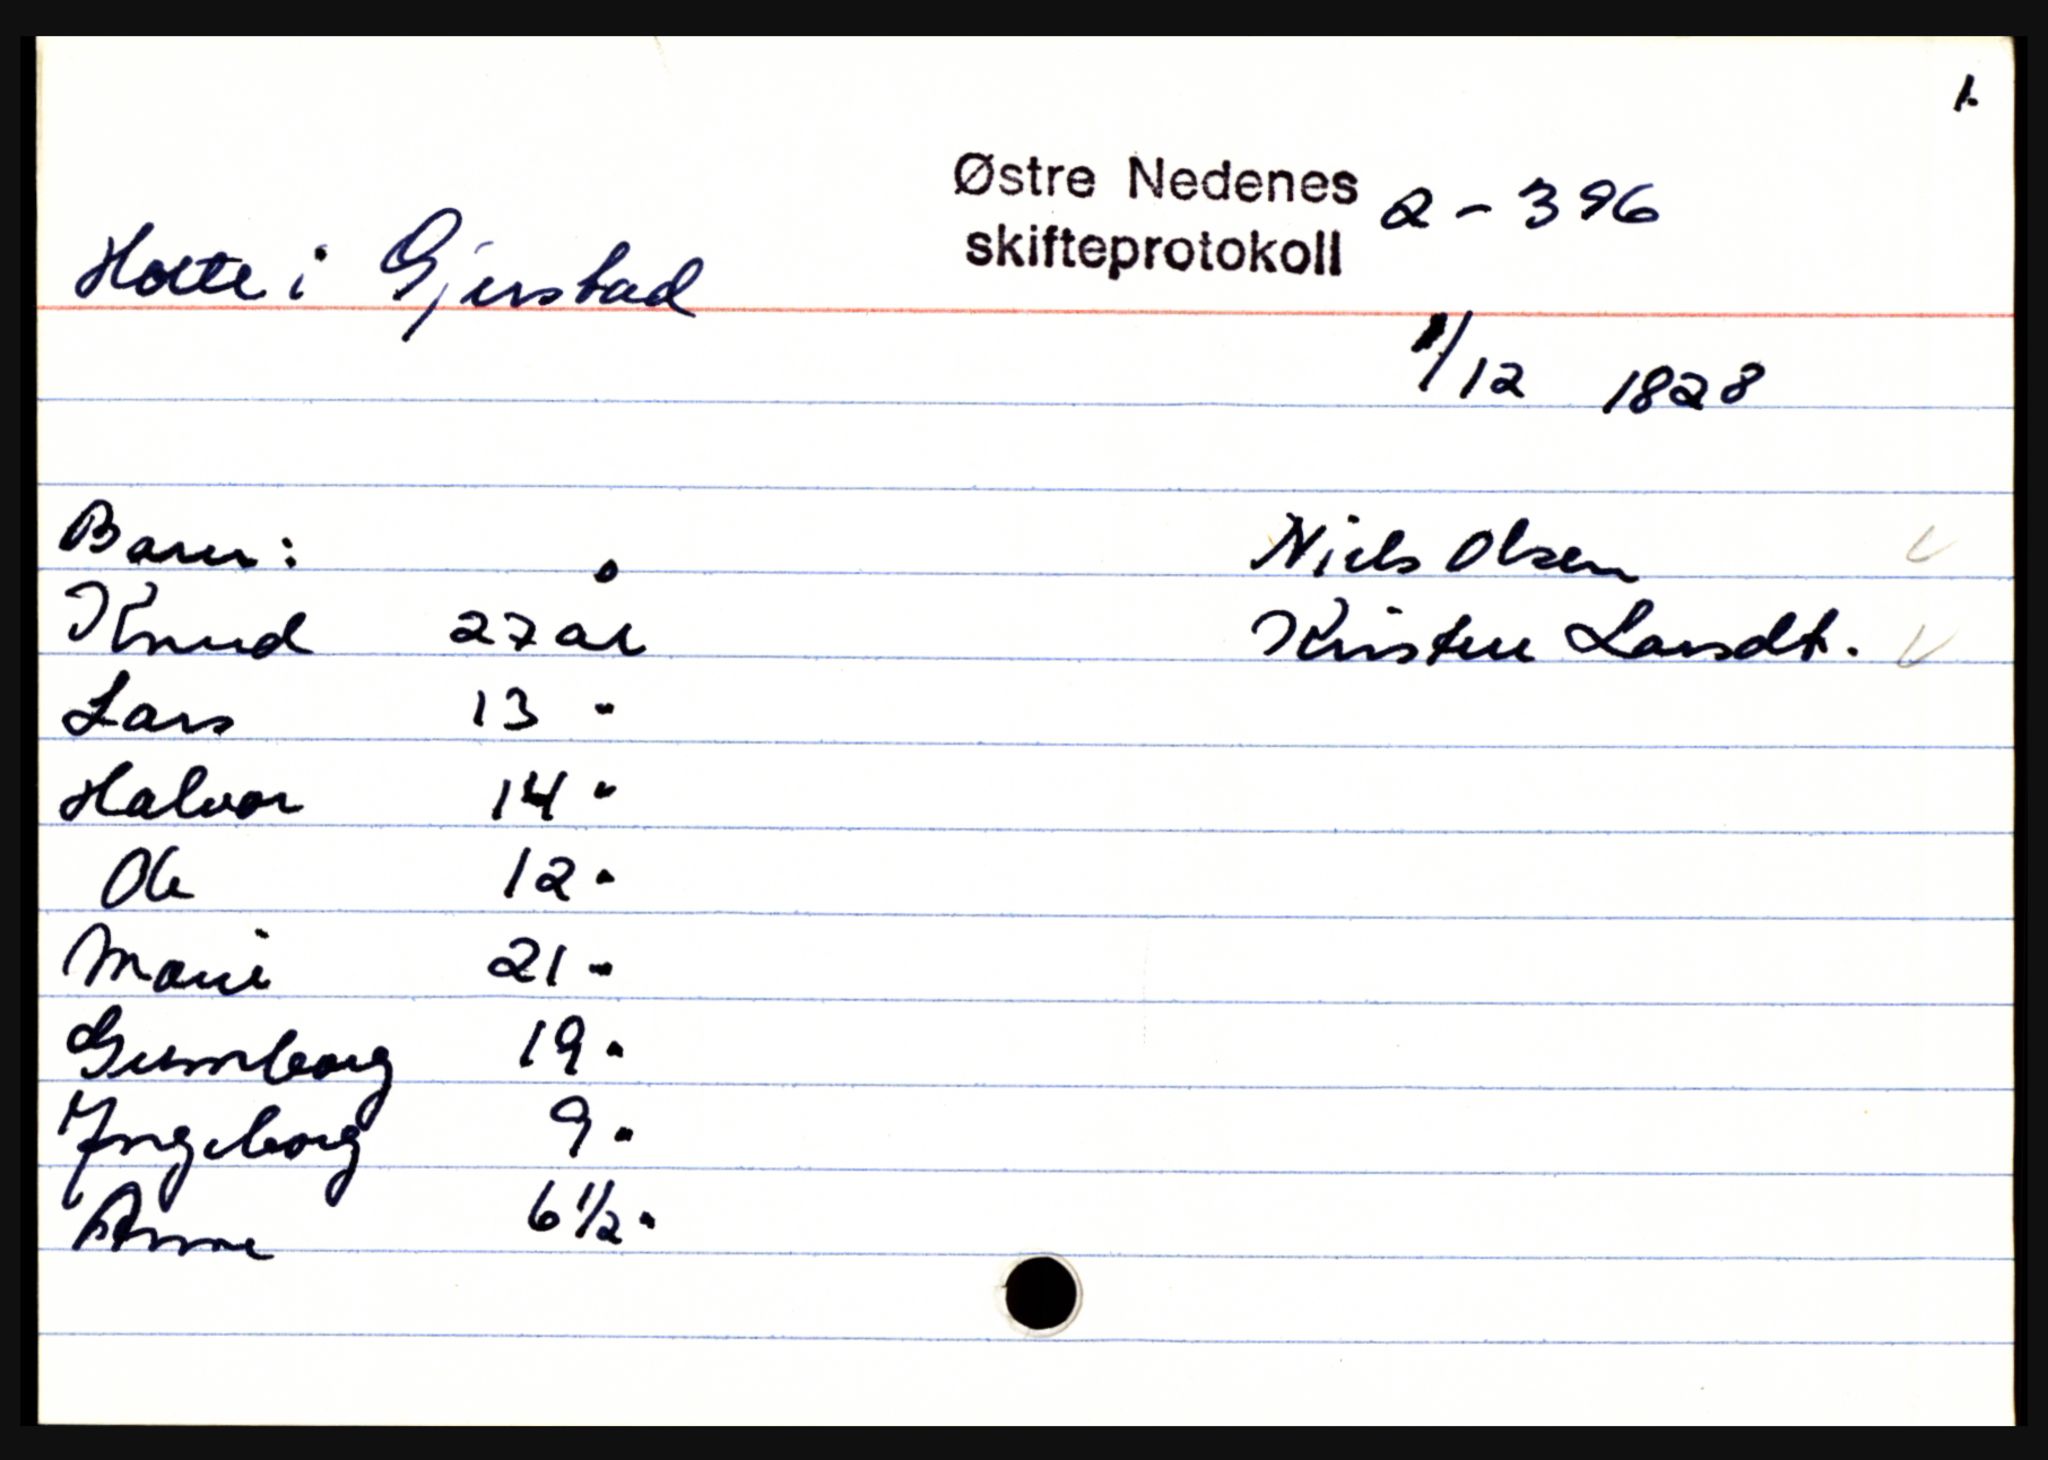 1.
Østre Nedenes 2-396
skifteprotokoll
Holte i Gjerstad
1/12 1828
Barn: Niels Olsen
Knud 27 år Kirsten Larsdt.
Lars 13 "
Halvor 14 "
Ole 12 "
Marie 21 "
Gunnborg 19 "
Ingeborg 9 "
Anne 6 1/2 "